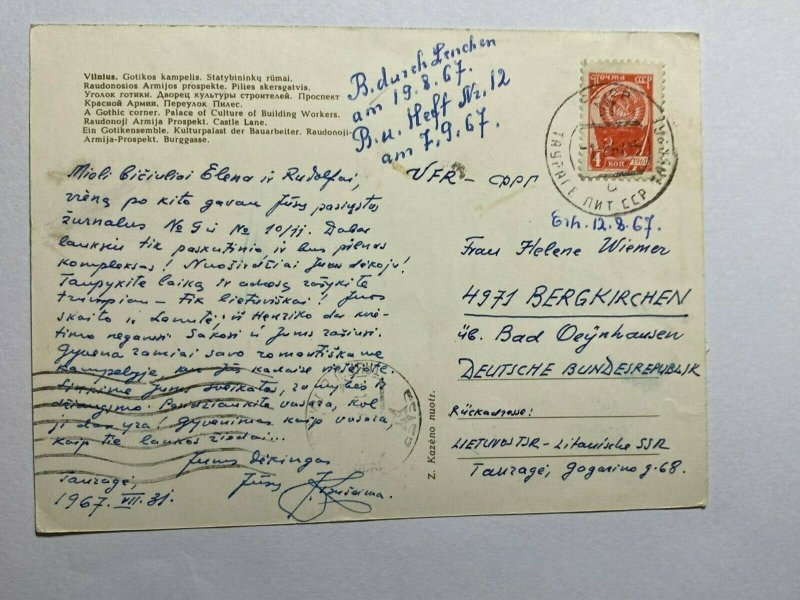 Vilnius. Gotikos kampelis. Statybininkų rūmai.
Raudonosios Armijos prospekte. Pilies skersgatvis.
Уголок готики. Дворец культуры строителей. Проспект
Красной Армии. Переулок Пилес.
A Gothic corner. Palace of Culture of Building Workers.
Raudonoji Armija Prospekt. Castle Lane.
Ein Gotikensemble. Kulturpalast der Bauarbeiter. Raudonoji-
Armija-Prospekt. Burggasse.
B. durch
am 19.8.67.
B. u. Heft Nr. 12
am 7.9.67.
ПОЧТА СССР
4 КОП.
ТАУРАГЕ ЛИТ ССР
Mieli bičiuliai Elena ir Rudolfai,
vieną po kito gavau Jūsų pasiųstus
žurnalus № 9 ir № 10/11. Dabar
lauksiu tik paskutinio ir bus pilnas
kompleksas! Nuoširdžiai Jums dėkoju!
Taupykite laiką ir adresą rašykite
trumpiau - tik lietuviškai! Juos
skaito ir ir Henriko dar
negavusi. Sakosi Jums
Gyvena ramiai savo romantiškame
kampelyje
Jums sveikatos,
džiaugsmo. vasara, kol
ji dar yra! Gyvenimas kaip vasara,
kaip tie laukos žiedai...
Jums dėkingas
Tauragė, Jūsų
1967. VII. 31.
Z. Kazėno nuotr.
VFR - ФРГ
Erh. 12.8.67.
Frau Helene Wiemer
4971 BERGKIRCHEN
üb. Bad Oeynhausen
DEUTSCHE BUNDESREPUBLIK
Rückadresse:
LIETUVOS TSR - Litauische SSR
Tauragė, Gagarino g. 68.